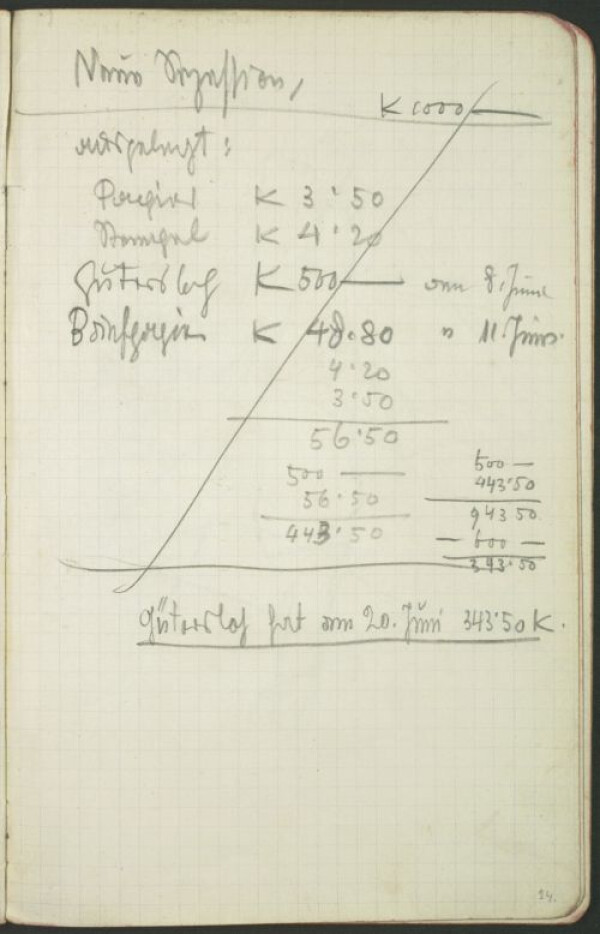 Neue Sezession,
K 1000 —
ausgelegt:
Papier K 3·50
Stempel K 4·20
Gütersloh K 500 — am 8. Juni
Briefpapier K 48.80 " 11. Juni.
4·20
3·50
56·50
500 —
56·50
443·50
500 —
443·50
943 50.
— 600 —
343·50
Gütersloh hat am 20. Juni 343·50 K.
14.